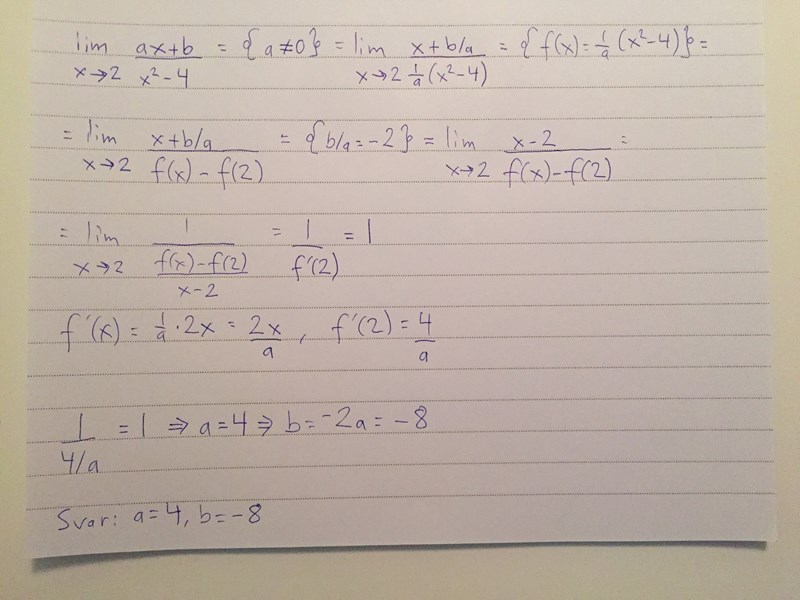 lim x→2 (ax+b)/(x²-4) = {a≠0} = lim x→2 (x+b/a)/(1/a (x²-4)) = {f(x)=1/a (x²-4)} =
= lim x→2 (x+b/a)/(f(x)-f(2)) = {b/a=-2} = lim x→2 (x-2)/(f(x)-f(2)) =
= lim x→2 1/((f(x)-f(2))/(x-2)) = 1/f'(2) = 1
f'(x) = 1/a · 2x = 2x/a , f'(2) = 4/a
1/(4/a) = 1 ⇒ a=4 ⇒ b=-2a=-8
Svar: a=4, b=-8